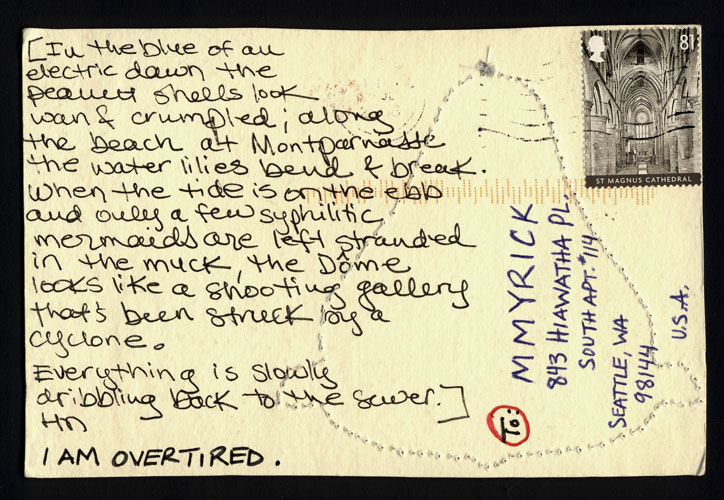 [In the blue of an
electric dawn the
peanut shells look
wan & crumpled; along
the beach at Montparnasse
the water lilies bend & break.
When the tide is on the ebb
and only a few syphilitic
mermaids are left stranded
in the muck, the Dôme
looks like a shooting gallery
that's been struck by a
cyclone.
Everything is slowly
dribbling back to the sewer.]
HM
I AM OVERTIRED.
81
ST MAGNUS CATHEDRAL
To:
MMYRICK
843 HIAWATHA PL.
SOUTH APT. #114
SEATTLE, WA
98144
U.S.A.